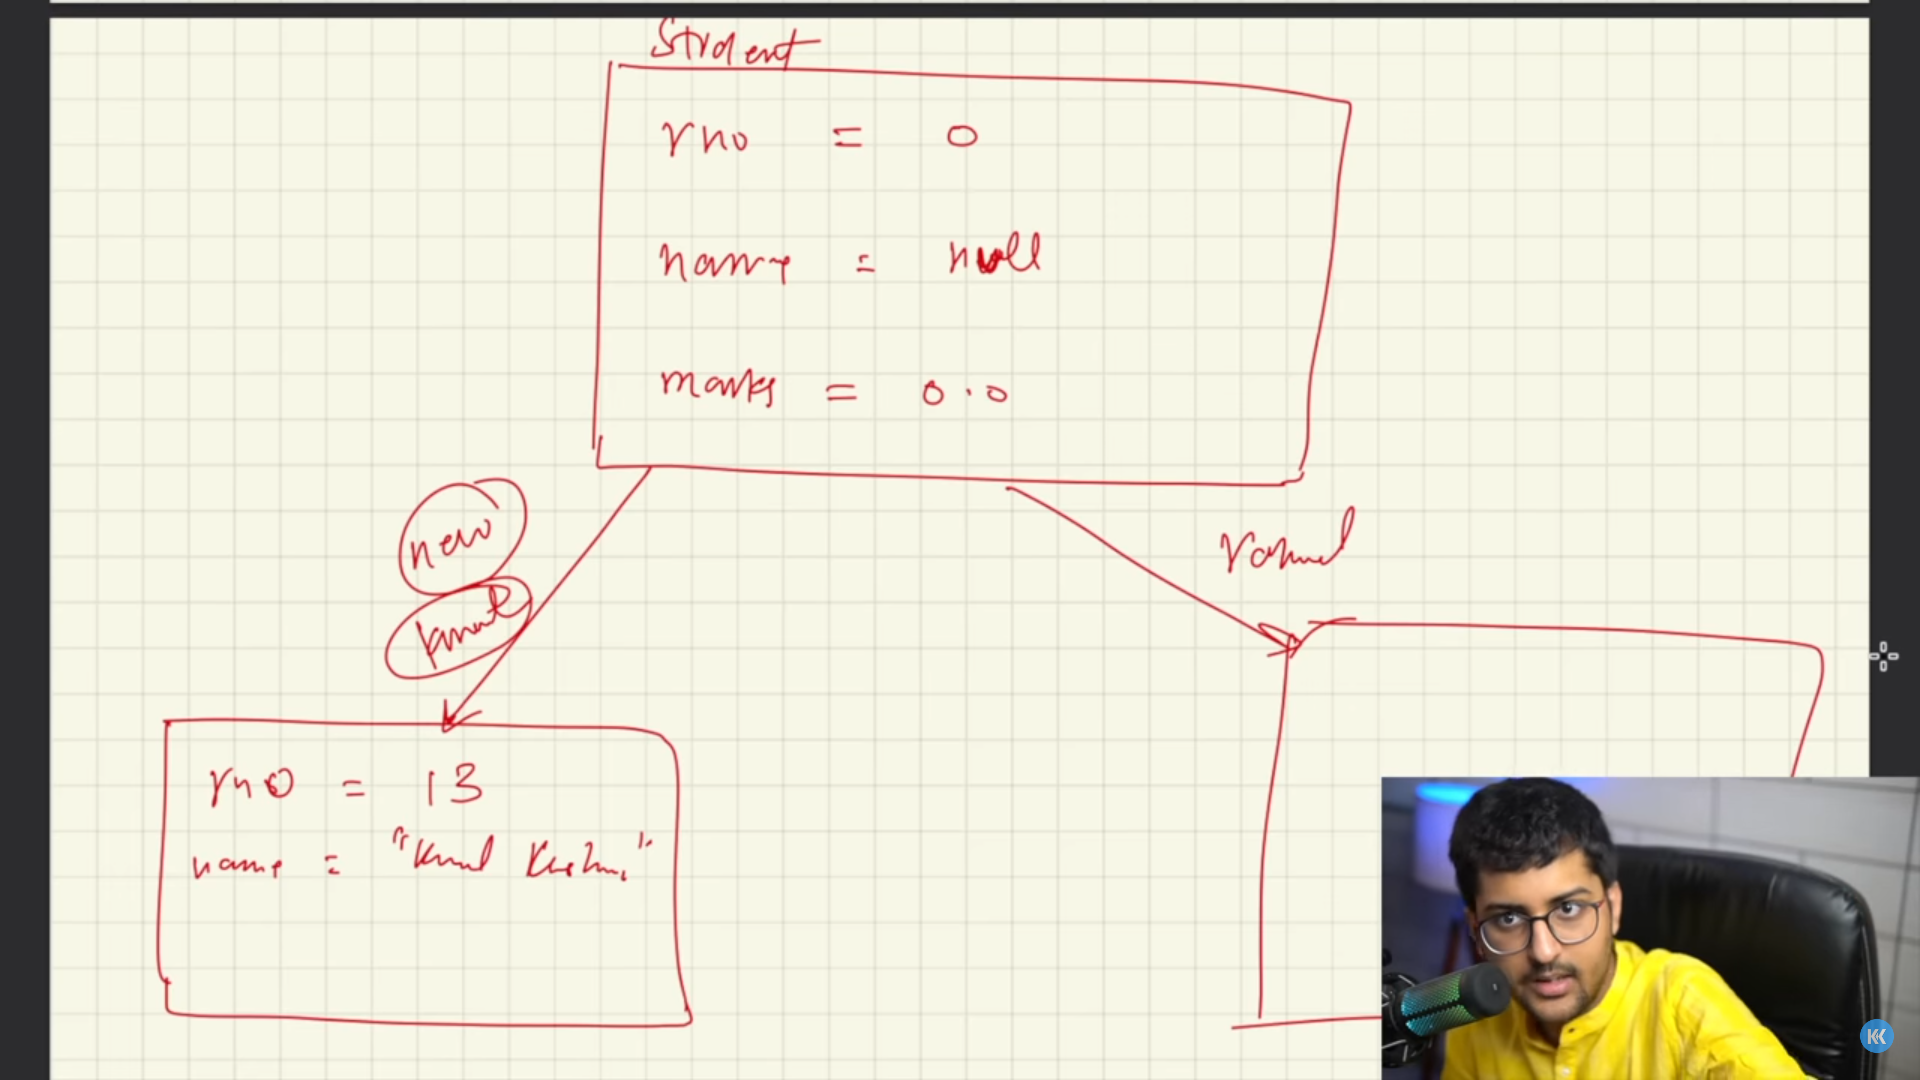 Student
rno = 0
name = null
marks = 0.0
new
kunal
rahul
rno = 13
name = "Kunal Kushwaha"
KK